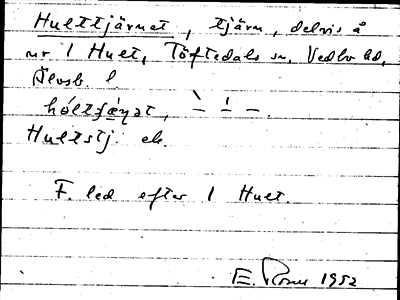 Hulttjärnet, tjärn, delvis å
nr 1 Hult, Töftedals sn, Vedbo hd,
Älvsb. l.
hóltɟæ̨ṇət, ` ' –.
Hultstj. ek.
F. led efter 1 Hult.
E. 1952